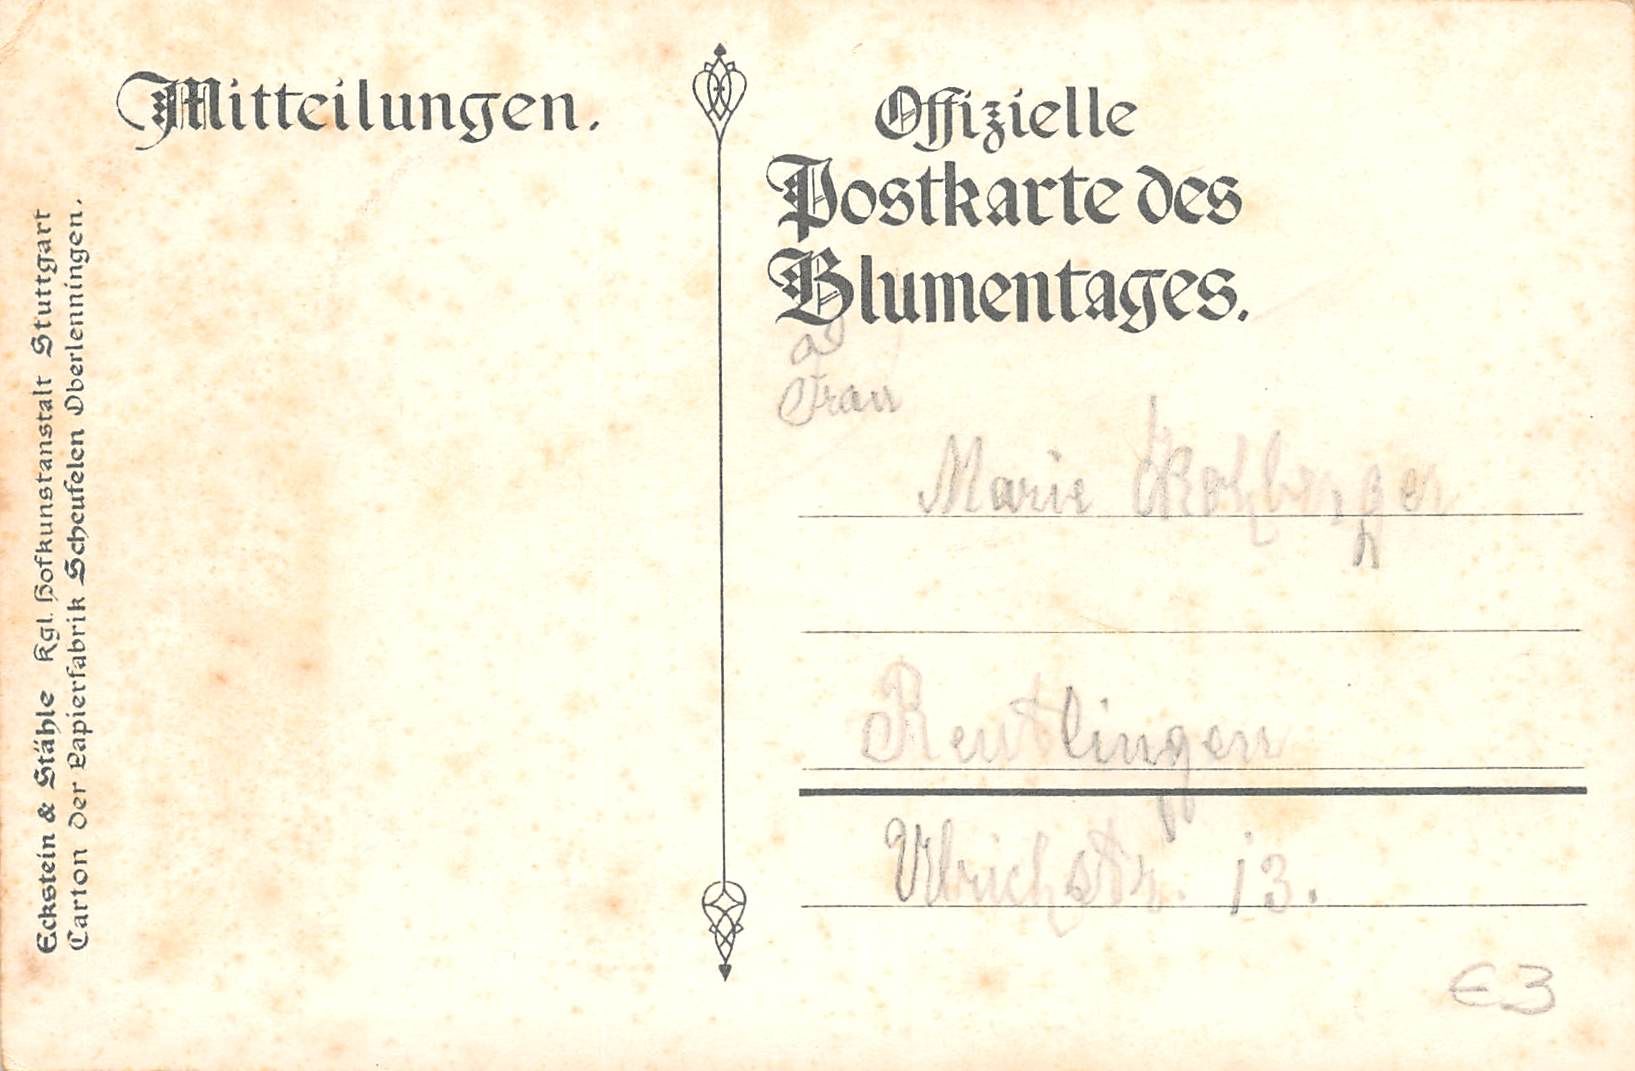 Mitteilungen.
Offizielle
Postkarte des
Blumentages.
Frau
Marie
Reutlingen
Ulrichstr. 13.
€3
Eckstein & Stähle Kgl. Hofkunstanstalt Stuttgart
Carton der Papierfabrik Scheufelen Oberlenningen.